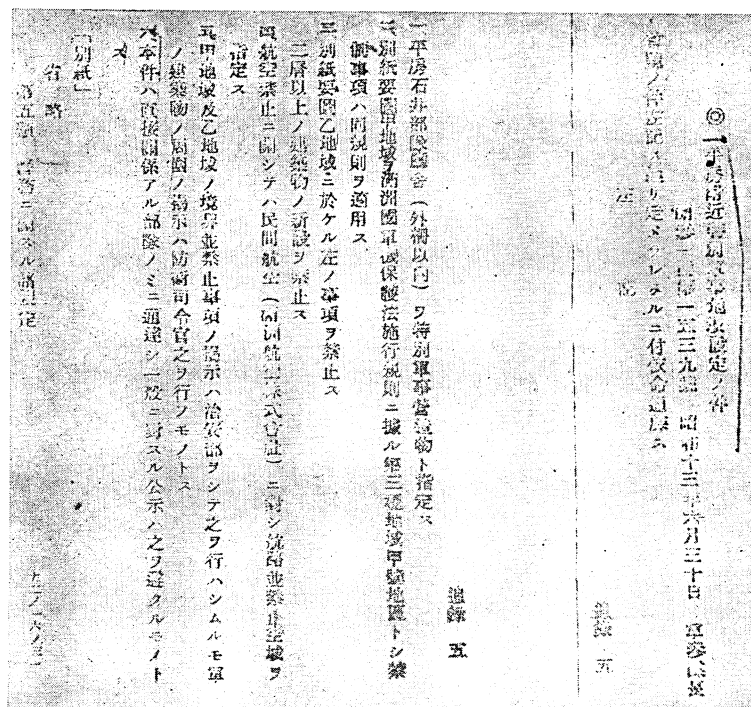 ◎平房附近特別軍事地域設定ノ件
昭和十三年六月三十日
左記
追録 五
追錄 五
一平房石井部隊廳舎(外柵以内)ヲ特別軍事營造物ト指定ス
二別紙要圖甲地域ヲ滿洲國軍機保護法施行規則ニ據ル第三種地域甲號地區トシ禁
制事項ハ同規則ヲ適用ス
三別紙要圖乙地域ニ於ケル左ノ事項ヲ禁止ス
二層以上ノ建築物ノ新設ヲ禁止ス
四航空禁止ニ關シテハ民間航空(滿洲航空株式會社)ニ對シ航路並禁止空域ヲ
指定ス
五甲地域及乙地域ノ境界並禁止事項ノ提示ハ治安部ヲシテ之ヲ行ハシムルモ軍
ノ建築物ノ周圍ノ揭示ハ防衛司令官之ヲ行フモノトス
六本件ハ直接關係アル部隊ノミニ通達シ一般ニ對スル公示ハ之ヲ避クルモノト
ス
「別紙」
省略